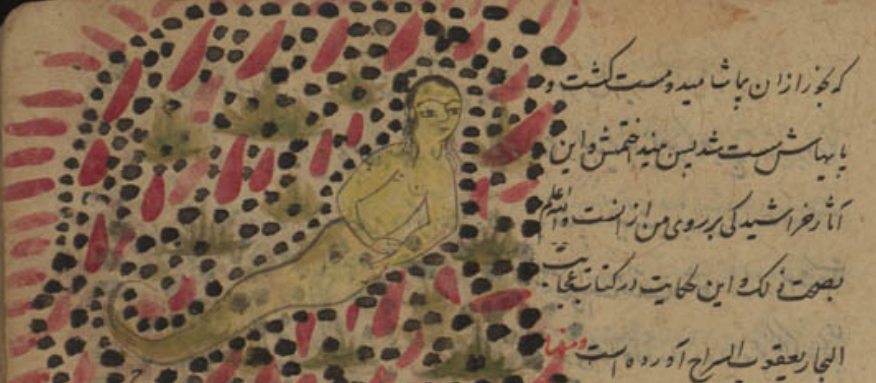 که بخورازان بیاشامید و مست کشت و
پایهاش سست شد پس بینداختمش و این
آثار خراشیدکی بر روی من ازانست والله اعلم
بصحت ذلک و این حکایت در کتاب عجایب
البحار یعقوب السراج آورده است ومنها